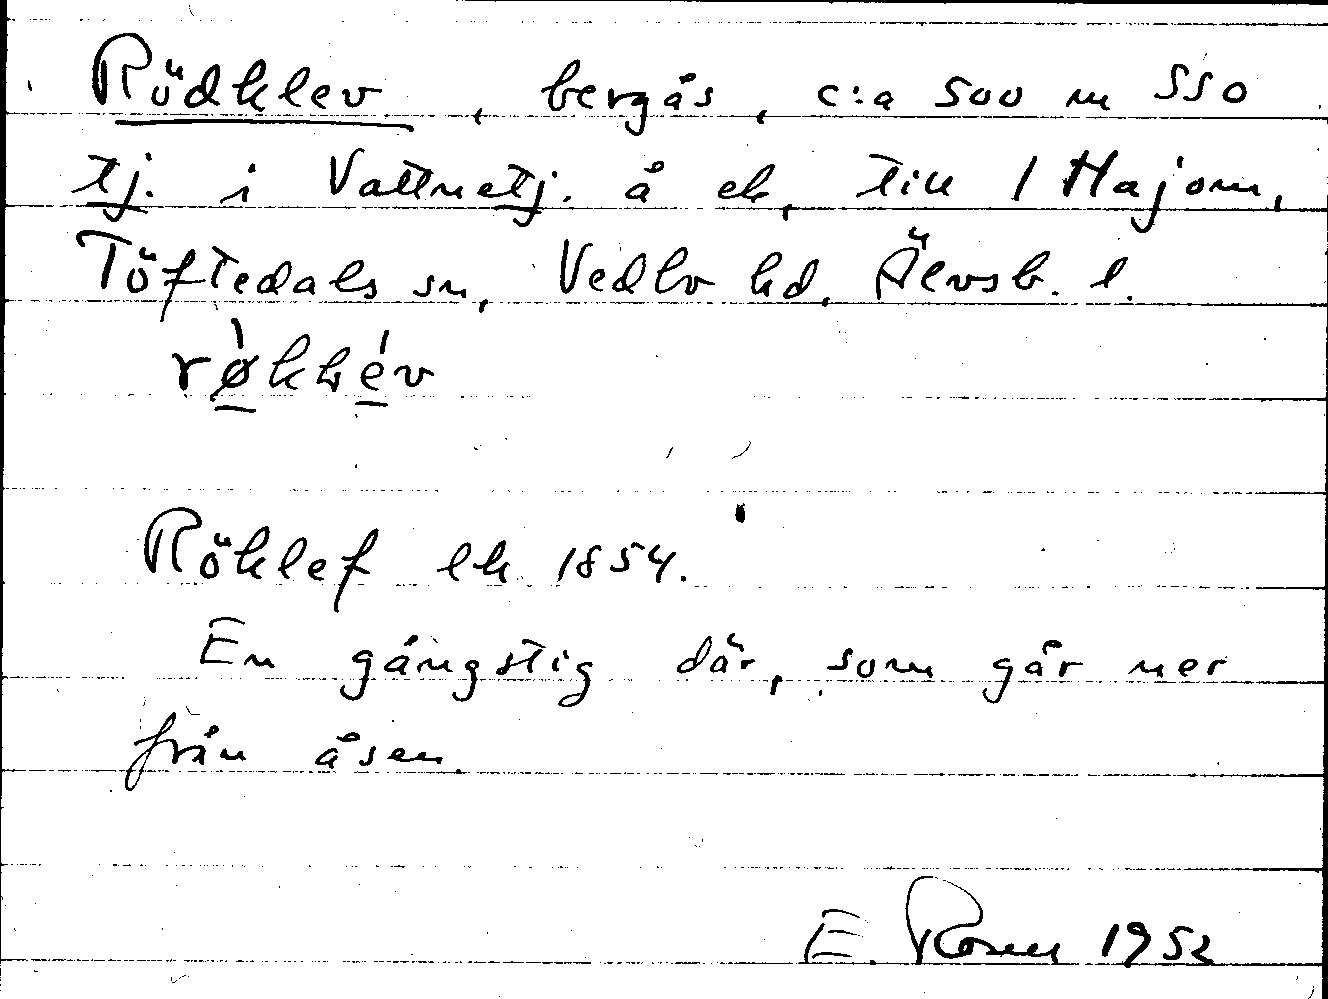 Rödklev, bergås, c:a 500 m SSO
tj. i Vattnetj. å ek, till 1 Hajom,
Töftedals sn, Vedbo hd, Älvsb. l.
Röklef lk 1854.
En gångstig där, som går ner
från åsen.
E. Rosen 1952